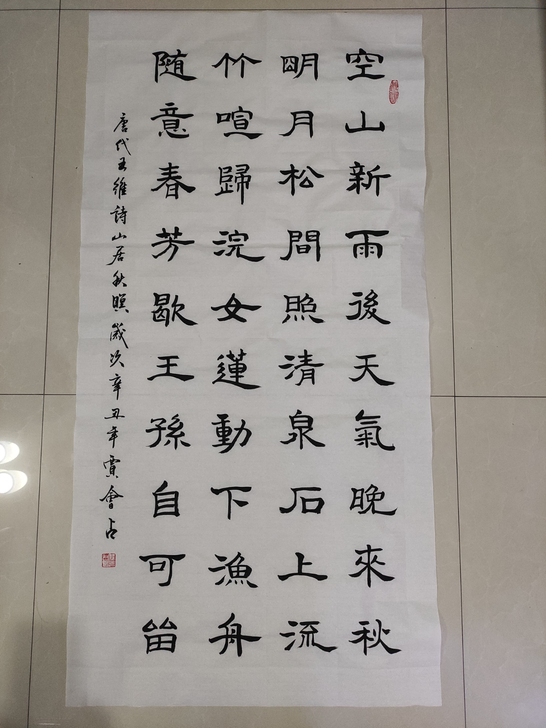 空山新雨後天氣晚來秋
明月松間照清泉石上流
竹喧歸浣女蓮動下漁舟
随意春芳歇王孫自可留
唐代王維詩山居秋暝歲次辛丑年會占